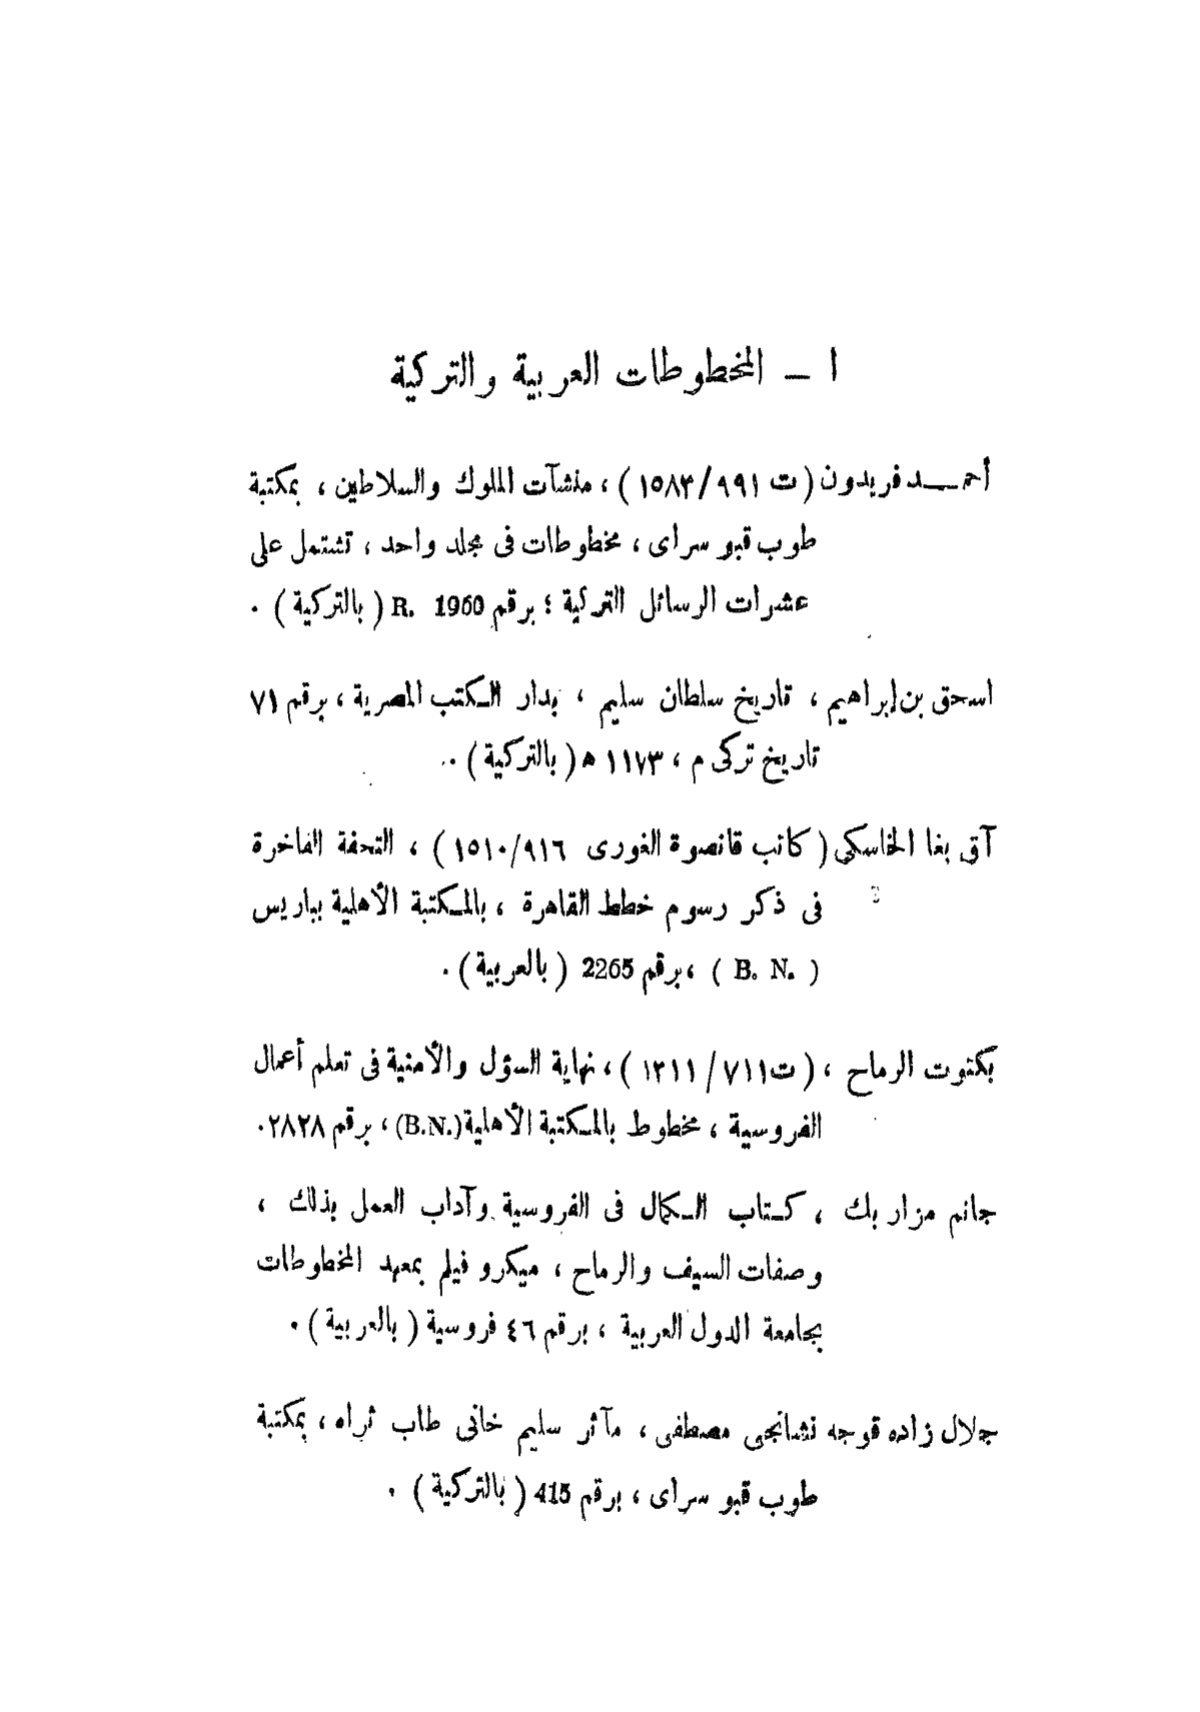 ا – المخطوطات العربية والتركية
أحمــد فريدون (ت ٩٩١/١٥٨٣) ، منشآت الملوك والسلاطين ، بمكتبة
طوب قبو سراى ، مخطوطات فى مجلد واحد ، تشتمل على
عشرات الرسائل التركية ؛ برقم R. 1960 (بالتركية) .
اسحق بن إبراهيم ، تاريخ سلطان سليم ، بدار الكتب المصرية ، برقم ٧١
تاريخ تركى م ، ١١٧٣ ه (بالتركية) .
آق بغا الخاسكى (كاتب قانصوة الغورى ٩١٦/١٥١٠) ، التحفة الفاخرة
فى ذكر رسوم خطط القاهرة ، بالمكتبة الأهلية بباريس
( B. N. ) ، برقم 2265 (بالعربية) .
بكتوت الرماح ، (ت٧١١/١٣١١) ، نهاية السؤل والأمنية فى تعلم أعمال
الفروسية ، مخطوط بالمكتبة الأهلية (B.N.) ، برقم ٢٨٢٨ .
جانم مزار بك ، كتاب الكمال فى الفروسية وآداب العمل بذلك ،
وصفات السيف والرماح ، ميكرو فيلم بمعهد المخطوطات
بجامعة الدول العربية ، برقم ٤٦ فروسية (بالعربية) .
جلال زاده قوجه نشانجى مصطفى ، مآثر سليم خانى طاب ثراه ، بمكتبة
طوب قبو سراى ، برقم 415 (بالتركية) .